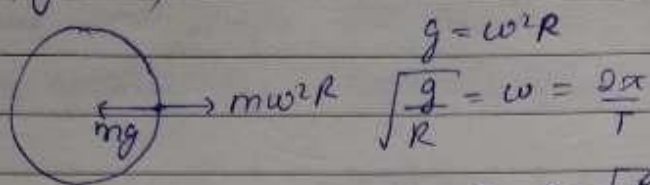 g = ω²R
mg mω²R √g/R = ω = 2π/T